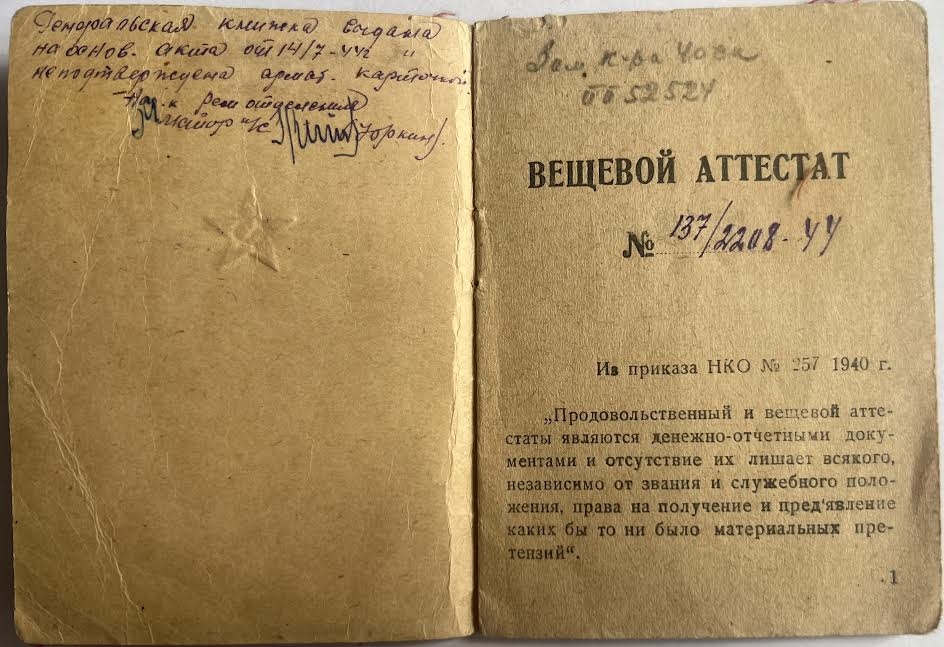 Генеральская книжка выдана
на основ. акта от 14/7-44г и
неподтверждена армат. карточкой.
Нач. к рем отделения
Майор и/с Юркин).
Зам. к-ра Части
пп 52524
ВЕЩЕВОЙ АТТЕСТАТ
№ 137/2208-44
Из приказа НКО № 257 1940 г.
„Продовольственный и вещевой атте-
статы являются денежно-отчетными доку-
ментами и отсутствие их лишает всякого,
независимо от звания и служебного поло-
жения, права на получение и пред'явление
каких бы то ни было материальных пре-
тензий“.
1